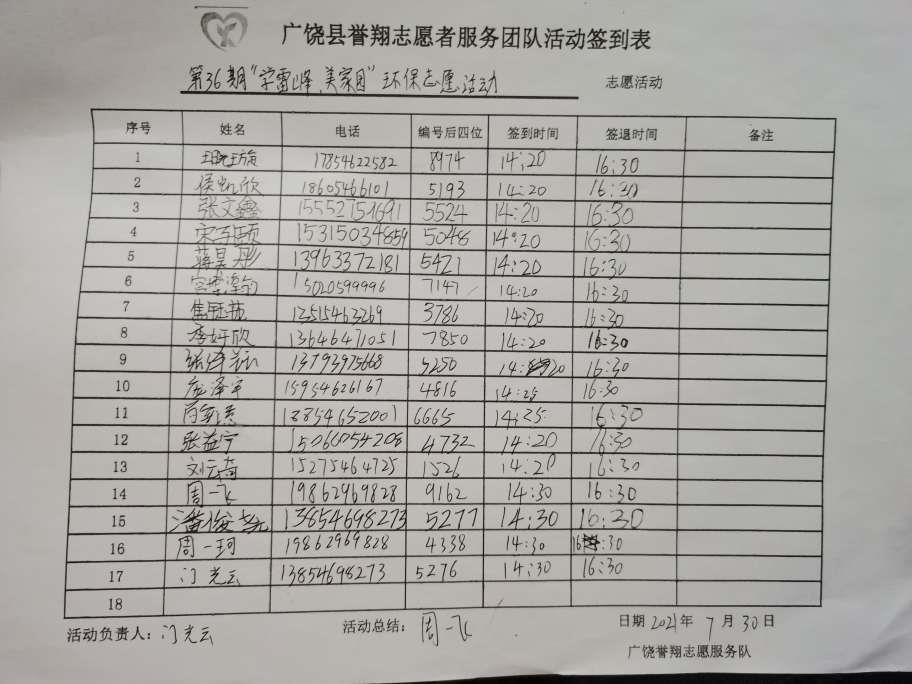 广饶县誉翔志愿者服务团队活动签到表
第36期“学雷峰、美家园”环保志愿活动 志愿活动
序号 姓名 电话 编号后四位 签到时间 签退时间 备注
1 17854622582 8974 14:20 16:30
2 侯凯欣 18605466101 5193 14:20 16:30
3 张文鑫 15552751691 5524 14:20 16:30
4 15315034859 5048 14:20 16:30
5 蒋昊彤 13963372181 5421 14:20 16:30
6 15020599996 7147 14:20 16:30
7 3786 14:20 16:30
8 李妤欣 13646471051 7850 14:20 16:30
9 13793975668 5250 14:20 16:30
10 庞泽宇 15954626167 4816 14:25 16:30
11 6665 14:25 16:30
12 张益宁 15066054208 4732 14:20 16:30
13 刘云奇 15275464725 1526 14:20 16:30
14 周一飞 19862969828 9162 14:30 16:30
15 潘俊尧 13854698273 5277 14:30 16:30
16 周一珂 19862969828 4338 14:30 16:30
17 门光云 13854698273 5276 14:30 16:30
18
活动负责人：门光云 活动总结：周一飞 日期 2021年 7月30日
广饶誉翔志愿服务队